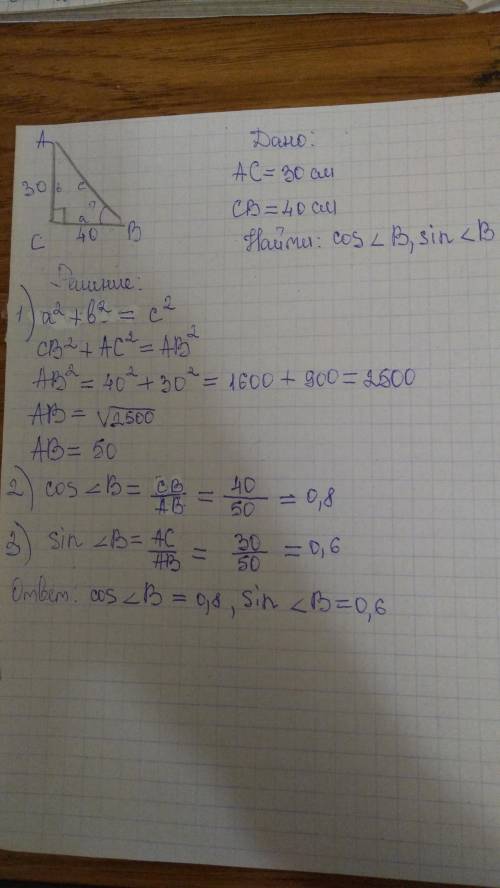 A
30
в
c
a
?
C
40
B
Дано:
AC = 30 см
CB = 40 см
Найти: cos ∠B, sin ∠B
Решение:
1) a² + b² = c²
CB² + AC² = AB²
AB² = 40² + 30² = 1600 + 900 = 2500
AB = √2500
AB = 50
2) cos ∠B = CB/AB = 40/50 = 0,8
3) sin ∠B = AC/AB = 30/50 = 0,6
Ответ: cos ∠B = 0,8, sin ∠B = 0,6